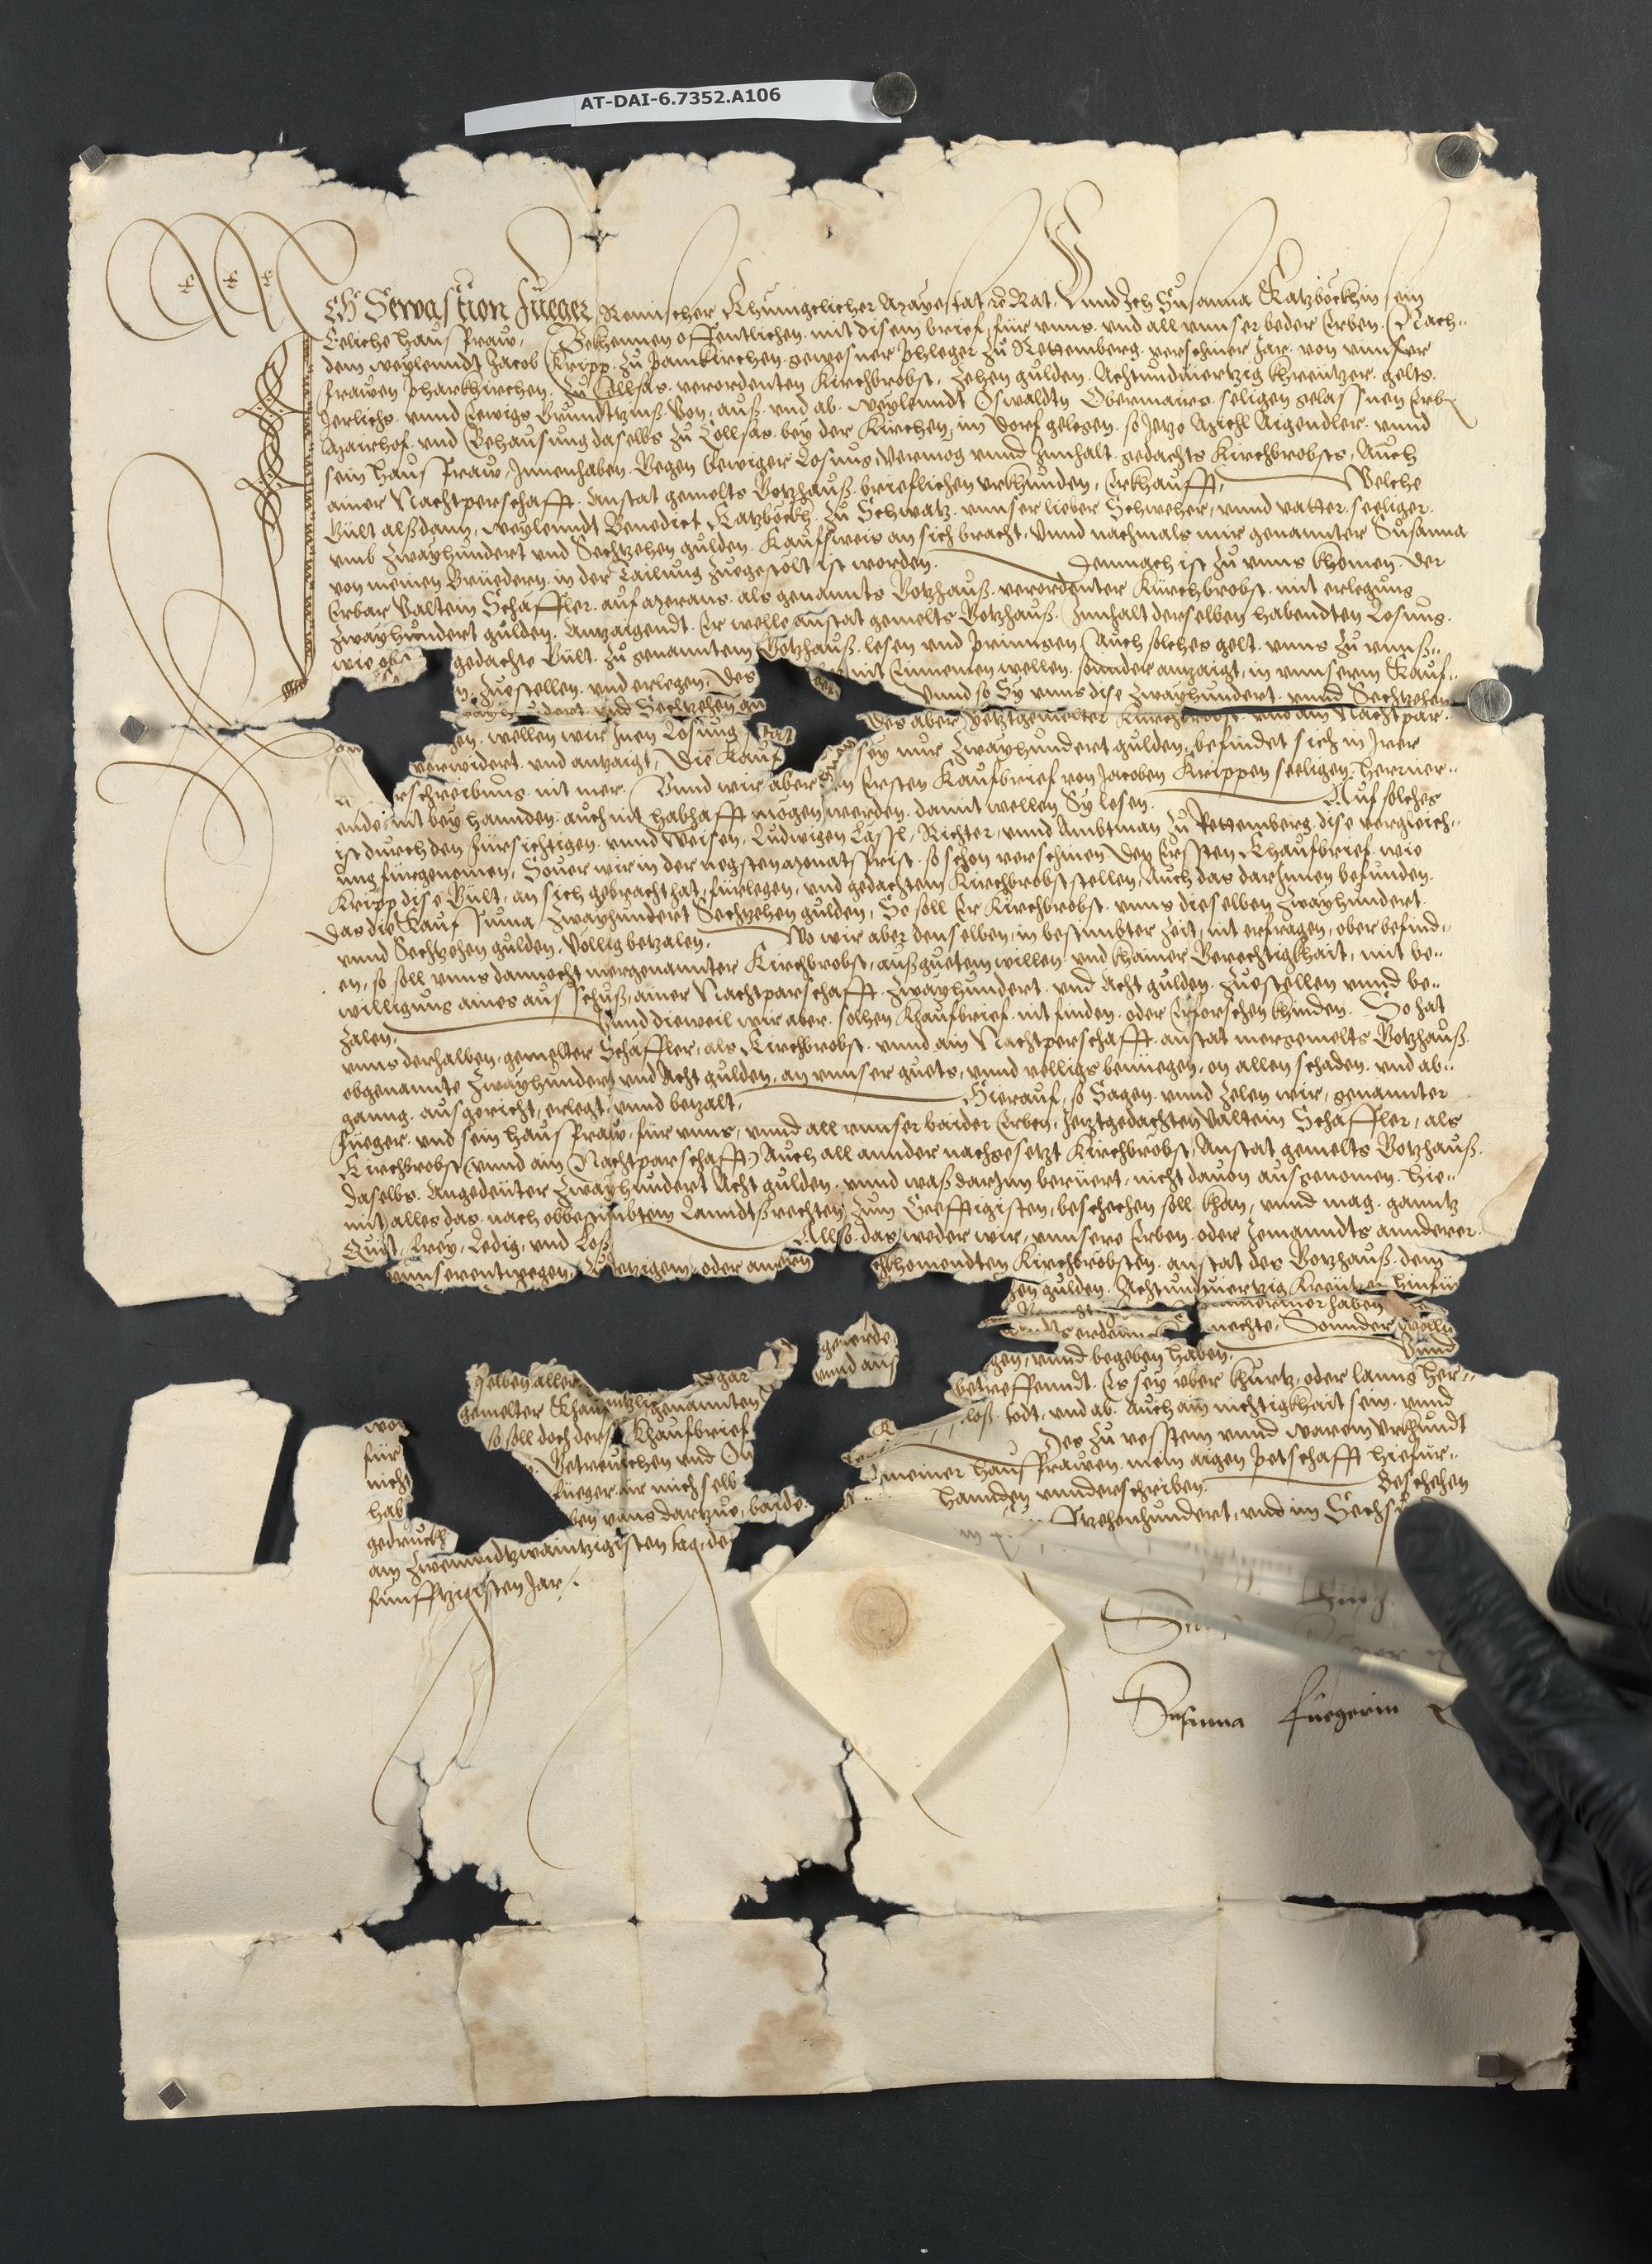 AT-DAI-6.7352.A106
Ich Sewastion Fueger, Römischer Khünigclicher Mayestat rc Rat. Unnd Ich Susanna Katzböckhin sein
Eeliche hausfraw, Bekhennen offentlichen mit disem brief, für unns. und all unnser beder Erben. Nach-
dem weylenndt Jacob Kripp zu Pamkirchen. gewesner Phleger zu Rettemberg. verschiner Jar. von unnser
frawen pharkhirchen. zu Collsas. verordenten Kirchbrobst, Zehen gulden. Achtundviertzig khreützer. gelts.
Jerlichs. unnd Eewigs Grundtzinß. Von, auß. und ab. weylenndt Oswaldtn Obermairs. seligen gelassnen Erbn
Mairhof. und Behausung daselbs zu Collsas. bey der Kirchen, im dorf gelegen. so Jetzo Michl Aigendler. unnd
sein hausfraw, Innenhaben. Gegen Eewiger Losung, Vermög unnd Innhalt. gedachts Kirchbrobsts, Auch
ainer Nachtperschafft. Anstat gemelts Gotzhauß. brieflichen urkhunden, Erkhaufft, Welche
Gült alßdann, weylenndt Benedict Katzböckh. zu Schwatz. unnser lieber Schweher, unnd vatter. seeliger.
umb Zwayhundert und Sechtzehen gulden. Kaufsweis an sich bracht. Unnd nachmals mir genannter Susanna
von meinen Brüedern. in der Tailung Zuegestölt ist worden. Demnach ist zu unns khomen. Der
Erbar Valtein Schäffler. auf Merans. als genannts Gotzhauß. verordenter Kirchbrobst. mit erlegung
Zwayhundert gulden. Antzaigendt. Er welle anstat gemelts Gotzhauß. Innhalt derselben habendten Losung.
wie obs gedachte Gült. zu genanntem Gotzhauß. lesen und pringen. Auch solches gelt. unns zu unnß-
n. Zuestellen. und erlegen. Des nit Einnemen wellen. sonnder antzaigt, in unnserm Kauf-
Zwayhundert und Sechtzehen gu Unnd so Sy unns dise Zwayhundert. unnd Sechtzehen
gen. wellen wir Inen Losung tat des aber Jetztgemelter Kirchbrobst. und ain Nachtpar.
verwidert. und antzaigt, Die Kauf sey nur Zwayhundert gulden, befindet sich in Irer
rschreibung. nit mer. Unnd wir aber den Ersten Kaufbrief von Jacoben Krippen seeligen. herrüer-
ende, nit bey hannden. auch nit habhafft mögen werden. damit wellen Sy lesen. Auf solches
ist durch den fürsichtigen. unnd Weisen, Ludwigen Lässl, Richter, unnd Ambtman zu Rettemberg, dise vergleich-
ung fürgenomen, Souer wir in der negsten monatsfrist. so schon verschinen Den Ersten Khaufbrief. wie
Kripp dise Gült, an sich gebracht hat, fürlegen, und gedachtem Kirchbrobst stellen, Auch das darInnen befunden
Das die Kauf Suma Zwayhundert Sechtzehen gulden, So soll Er Kirchbrobst. unns dieselben Zwayhundert.
unnd Sechtzehen gulden. Völlig betzalen, Wo wir aber denselben, in bestimbter Zeit, nit erfragen, ober befind-
en, so soll unns dannocht mergenannter Kirchbrobst, auß guetem willen. und khainer Gerechtigkhait, mit be-
willigung aines ausschuß, ainer Nachtparschafft. Zwayhundert. und Acht gulden. Zuestellen unnd be-
zalen, Unnd dieweil wir aber. solhen Khaufbrief. nit finden. oder Erforschen khinden. So hat
unns derhalben, gemelter Schäffler, als Kirchbrobst. unnd ain Nachtperschafft. anstat mergemelts Gotzhauß.
obgenannte Zwayhundert und Acht gulden, an unnser guets, unnd vollig benüegen, on allen schaden. und ab-
ganng. ausgericht, erlegt, unnd betzalt, Hierauf, so Sagen. unnd Zelen wir, genannter
Fueger. und sein hausfraw, für unns, unnd all unnser baider Erben, Jetztgedachten Valtein Schäffler, als
Kirchbrobst (unnd ain Nachtparschafft) Auch all annder nachgesetzt Kirchbröbst, Anstat gemelts Gotzhauß.
daselbs. Angedeuter Zwayhundert Acht gulden. unnd waß dartzue berüert, nicht davon ausgenomen. hie-
mit, alles das. nach obbestimbtem Lanndtßrechten zum Creftigisten, beschechen soll. khan, unnd mag. ganntz
Quit, frey, Ledig, und Loß Allso. das weder wir, unnsere Erben. oder Jemanndts annderer
unnserentwegen, zu Jetzigem, oder annder khomendten Kirchbröbsten. anstat des Gotzhauß. dem
hen gulden. Achtundviertzig Kreützer hinfür
nimermer haben
mechte, Sonnder
gewerde
gen, unnd begeben haben. Unnd
unnd aus
selben aller gar betreffenndt. Es sey uber khurtz, oder lanng her-
gemelter Khauf genannten loß. todt, und ab. Auch ain nichtigkhait sein. unnd
so soll doch ders Khaufbrief Des zu vesstem unnd warem Urkhundt
für Getreulichen und On meiner hausfrawen. mein aigen petschafft hiefür-
nicht Fueger. für mich selb hannden unnderschriben. Beschehen
hab ben unns dartzue, baide
gedruckh tzehenhundert, und im Sechs
am Zwenundtzwaintzigisten tag, des
funfftzigisten Jar.
Susanna Fuegerin